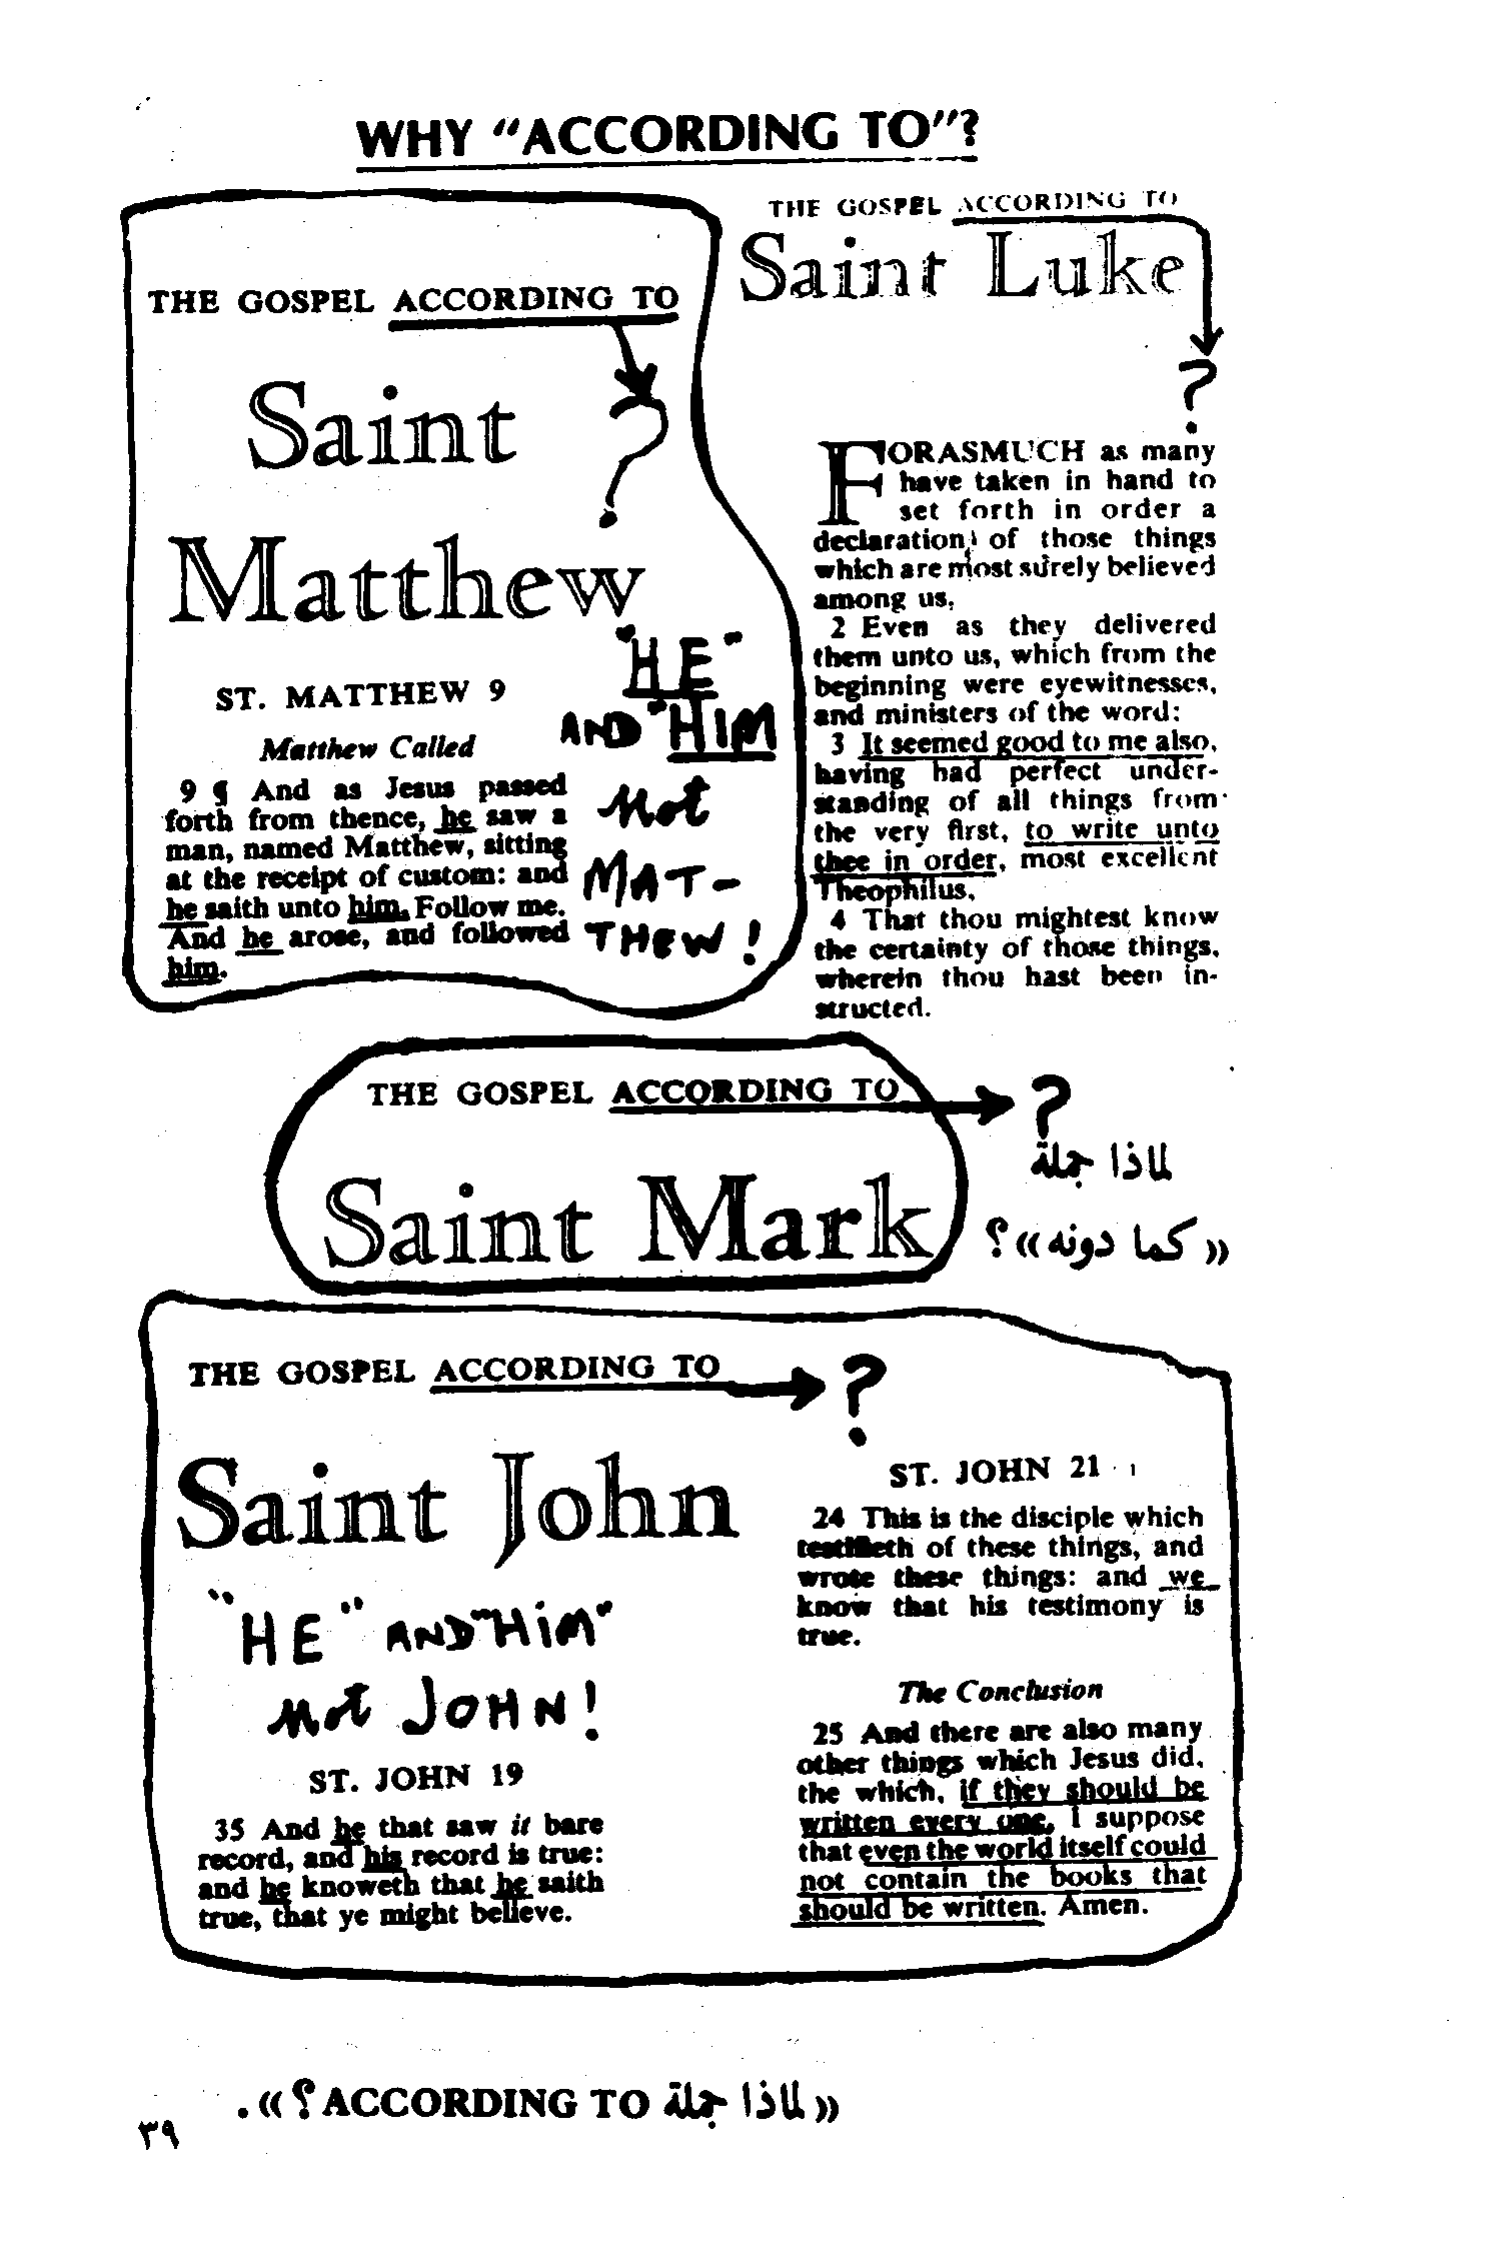 WHY "ACCORDING TO"?
THE GOSPEL ACCORDING TO
Saint
Matthew
?
"HE"
AND "HIM
Not
MAT-
THEW!
ST. MATTHEW 9
Matthew Called
9 ¶ And as Jesus passed
forth from thence, he saw a
man, named Matthew, sitting
at the receipt of custom: and
he saith unto him, Follow me.
And he arose, and followed
him.
THE GOSPEL ACCORDING TO
Saint Luke
?
FORASMUCH as many
have taken in hand to
set forth in order a
declaration of those things
which are most surely believed
among us,
2 Even as they delivered
them unto us, which from the
beginning were eyewitnesses,
and ministers of the word:
3 It seemed good to me also,
having had perfect under-
standing of all things from
the very first, to write unto
thee in order, most excellent
Theophilus,
4 That thou mightest know
the certainty of those things,
wherein thou hast been in-
structed.
THE GOSPEL ACCORDING TO
Saint Mark
?
لماذا جملة
«كما دونه»؟
THE GOSPEL ACCORDING TO
?
Saint John
"HE" AND "HiM"
Not JOHN!
ST. JOHN 19
35 And he that saw it bare
record, and his record is true:
and he knoweth that he saith
true, that ye might believe.
ST. JOHN 21
24 This is the disciple which
testifieth of these things, and
wrote these things: and we
know that his testimony is
true.
The Conclusion
25 And there are also many
other things which Jesus did,
the which, if they should be
written every one, I suppose
that even the world itself could
not contain the books that
should be written. Amen.
«لماذا جملة ACCORDING TO؟».
٣٩